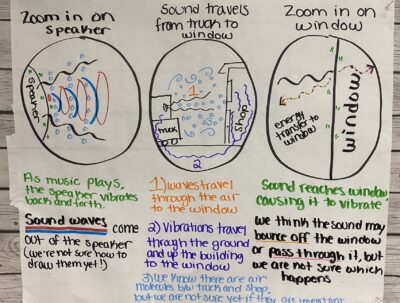 Zoom in on
speaker
speaker
As music plays,
the speaker vibrates
back and forth.
Sound waves come
out of the speaker
(we're not sure how to
draw them yet!)
Sound travels
from truck to
window
1
truck
shop
2
1) waves travel
through the air
to the window
2) Vibrations travel
through the ground
and up the building
to the window
3) we know there are air
molecules b/w truck and shop,
but we are not sure yet if they are important
Zoom in on
window
energy
transfer to
window
window
Sound reaches window
causing it to vibrate
we think the sound may
bounce off the window
or pass through it, but
we are not sure which
happens